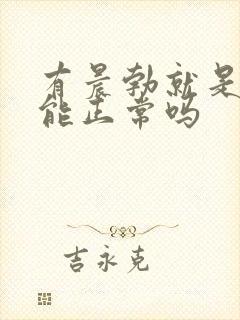 有晨勃就是
能正常吗
吉永克